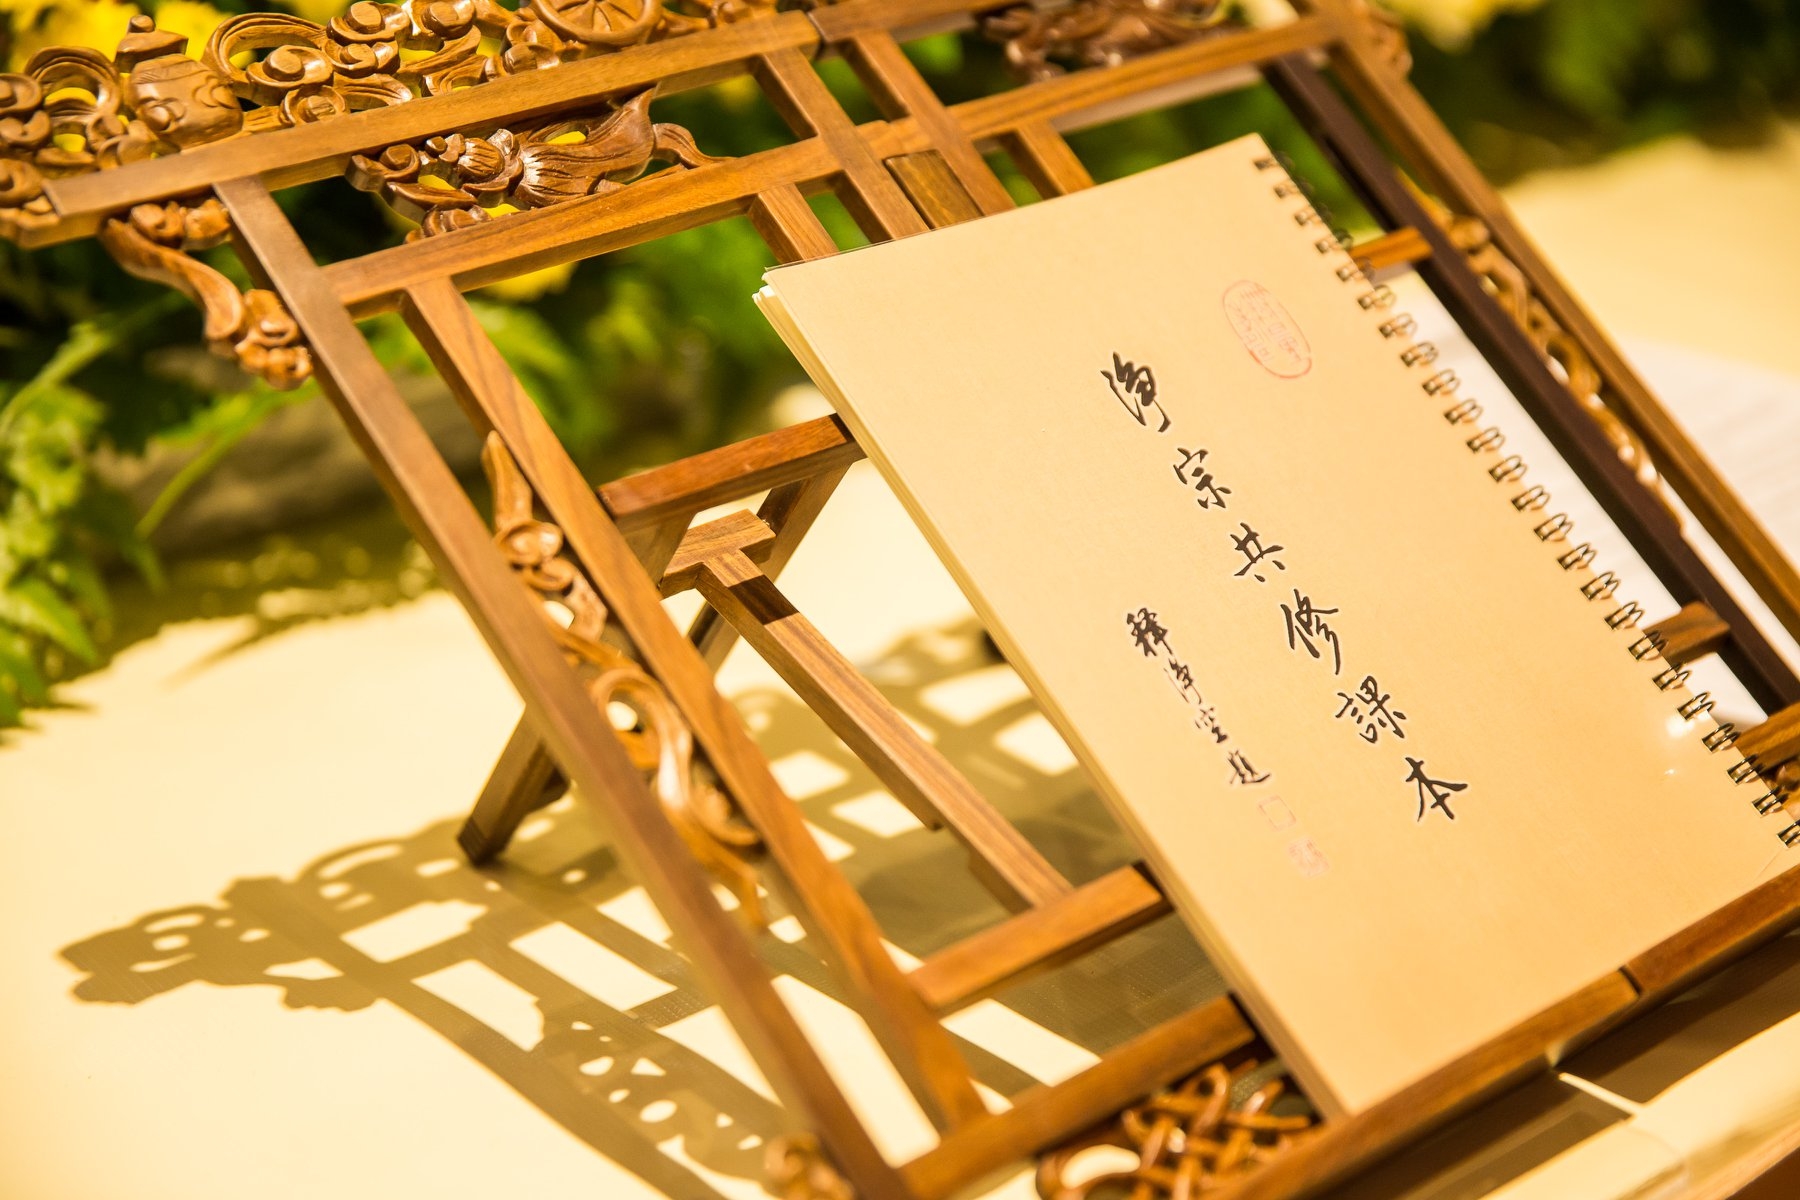 淨宗共修課本
釋淨空題